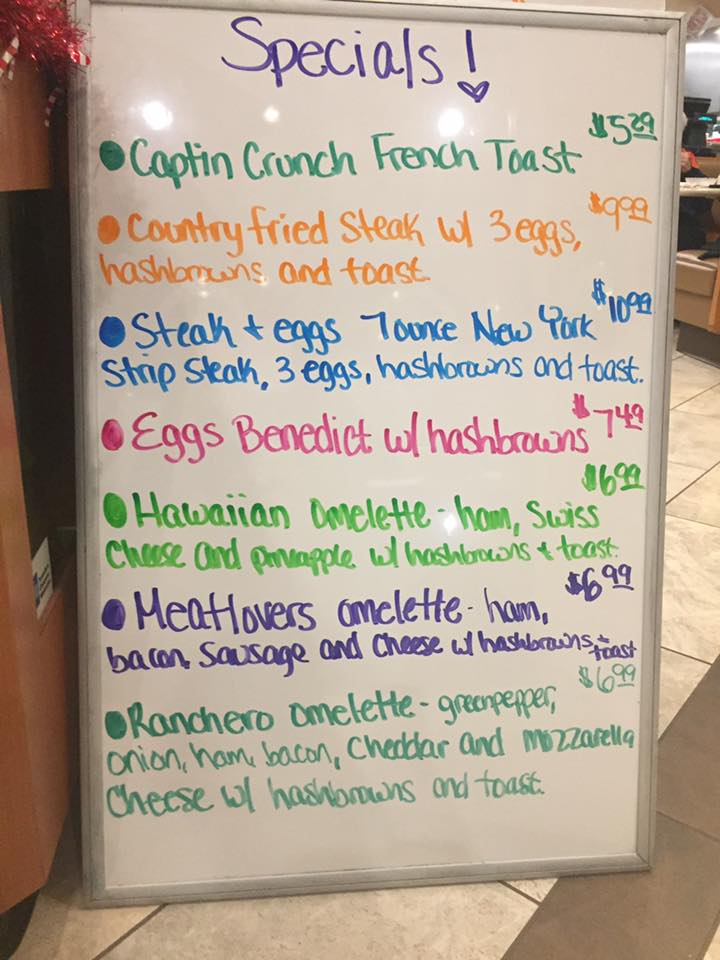 Specials!
$5.29
• Captin Crunch French Toast
$9.99
• Country fried Steak w/ 3 eggs,
hashbrowns and toast.
$10.99
• Steak + eggs 7 ounce New York
Strip Steak, 3 eggs, hashbrowns and toast.
• Eggs Benedict w/ hashbrowns $7.49
$6.99
• Hawaiian omelette - ham, Swiss
Cheese and pineapple w/ hashbrowns + toast.
$6.99
• Meatlovers omelette - ham,
bacon, Sausage and Cheese w/ hashbrowns + toast
$6.99
• Ranchero omelette - greenpepper,
onion, ham, bacon, Cheddar and mozzarella
Cheese w/ hashbrowns and toast.